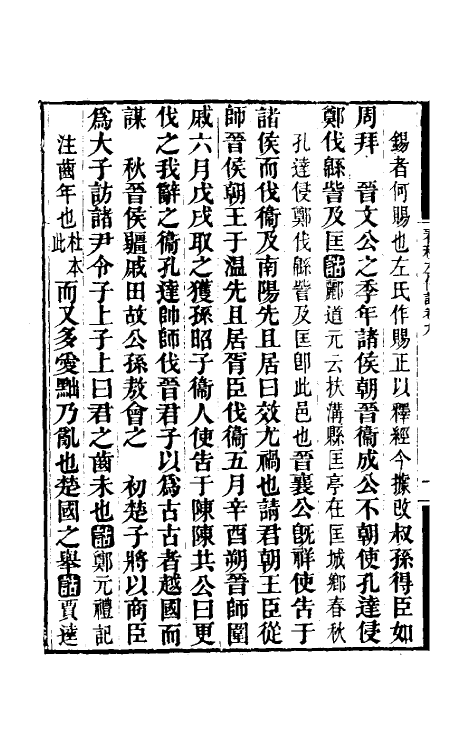 錫者何賜也左氏作賜正以釋經今據改叔孫得臣如
周拜　晉文公之季年諸侯朝晉衞成公不朝使孔達侵
鄭伐緜訾及匡詁酈道元云扶溝縣匡亭在匡城鄉春秋
孔達侵鄭伐緜訾及匡卽此邑也晉襄公旣祥使告于
諸侯而伐衞及南陽先且居曰效尤禍也請君朝王臣從
師晉侯朝王于温先且居胥臣伐衞五月辛酉朔晉師圍
戚六月戊戌取之獲孫昭子衞人使告于陳陳共公曰更
伐之我辭之衞孔達帥師伐晉君子以爲古古者越國而
謀　秋晉侯疆戚田故公孫敖會之　初楚子將以商臣
爲大子訪諸令尹子上子上曰君之齒未也詁鄭元禮記
注齒年也杜本此而又多愛黜乃亂也楚國之舉詁賈逵